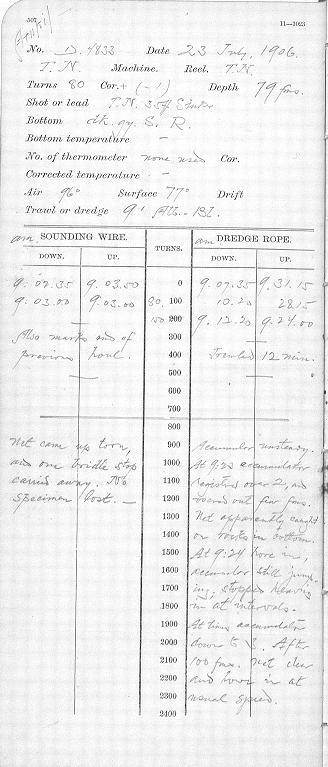 507 11—1023
No. D. 4833 Date 23 July, 1906.
T. N. Machine. Reel. T. N.
Turns 80 Cor. + (-1) Depth 79 fms.
Shot or lead T.N. 35#
Bottom dk. gy. S. R.
Bottom temperature —
No. of thermometer none used Cor.
Corrected temperature —
Air 76° Surface 77° Drift
Trawl or dredge 9'
am SOUNDING WIRE. TURNS. am DREDGE ROPE.
DOWN. UP. DOWN. UP.
9:02.35 9.03.50 0 9.07.35 9.31.15
9:03.00 9.03.00 80. 100 10.20 28.15
150 200 9.12.20 9.24.00
Also marks end of 300
previous haul. 400 Trawled 12 min.
500
600
700
800
Net came up torn, 900 Accumulator unsteady.
and one bridle stop 1000 At 9:20 accumulator
carried away. No 1100 registered over 2, and
specimen lost. — 1200 veered out few fms.
1300 Net apparently caught
1400 on rocks on bottom.
1500 At 9:24 hove in,
1600 accumulator still jump-
1700 ing; stopped heaving
1800 in at intervals.
1900 At times accumulator
2000 down to 3. After
2100 100 fms. net clear
2200 and hove in at
2300 usual speed.
2400